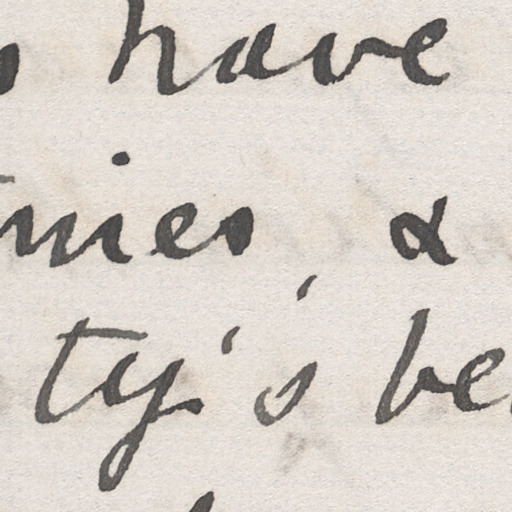 have
mies, &
ty's be